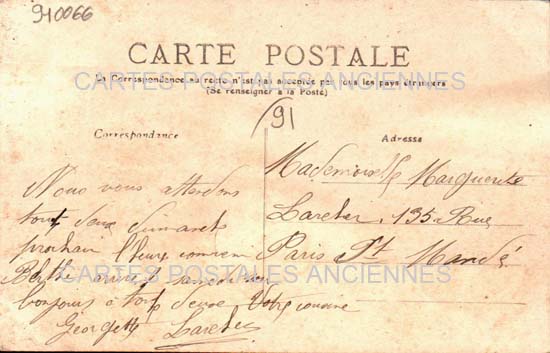 910066
CARTE POSTALE
La Correspondance au recto n'est pas acceptée par tous les pays étrangers
(Se renseigner à la Poste)
CARTES POSTALES ANCIENNES
91
Correspondance
Nous vous attendons
tout deux dimanche
prochain l'heure
Berthe arrive samedi soir
bonjour à tout deux Votre cousine
Georgette Lareter
Adresse
Mademoiselle Marguerite
Lareter, 135 Rue
Paris St Mandé
CARTES POSTALES ANCIENNES